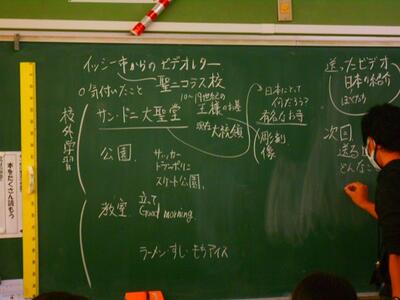 イッシー市からのビデオレター
○気付いたこと 聖ニコラス校
校外学習
サン・ドニ大聖堂
10〜19世紀の
王様のお墓
現在 大統領
日本にとって
何だろう?
有名なお寺
彫刻
像
公園
サッカー
トランポリン
スケート公園
教室 立て
Good morning
ラーメン・すし・もちアイス
送ったビデオ
日本の紹介
次回
送る
どんなこ
本をたくさん読もう